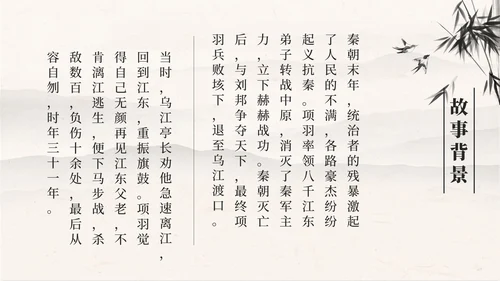 故事背景
秦朝末年,统治者的残暴激起
了人民的不满,各路豪杰纷纷
起义抗秦。项羽率领八千江东
弟子转战中原,消灭了秦军主
力,立下赫赫战功。秦朝灭亡
后,与刘邦争夺天下,最终项
羽兵败垓下,退至乌江渡口。
当时,乌江亭长劝他急速离江,
回到江东,重振旗鼓。项羽觉
得自己无颜再见江东父老,不
肯漓江逃生,便下马步战,杀
敌数百,负伤十余处,最后从
容自刎,时年三十一年。